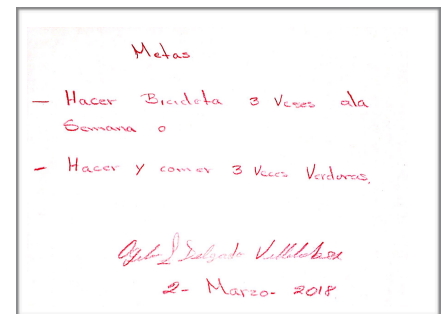 Metas
- Hacer Bicicleta 3 Veses ala
Semana o
- Hacer y comer 3 Veces Verduras.
Delgado
2- Marzo- 2018